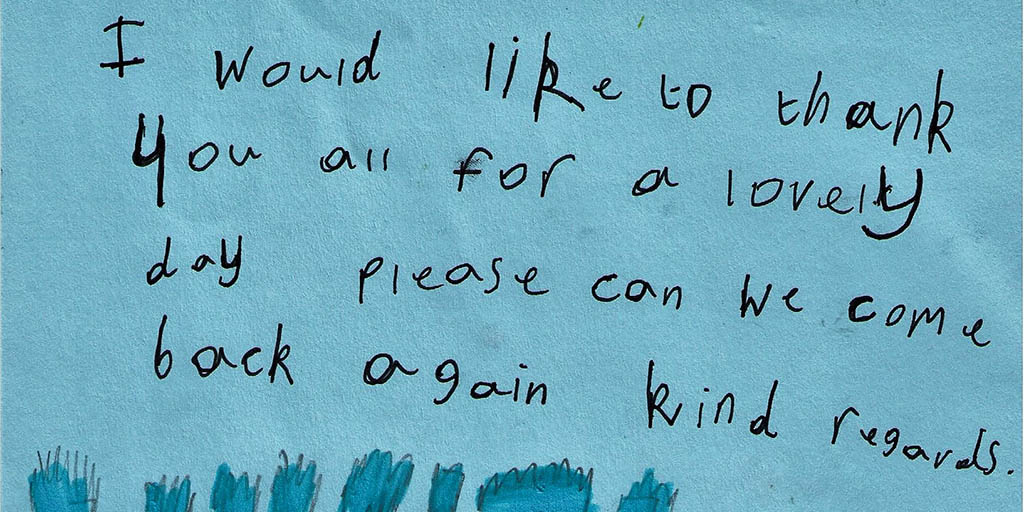 I would like to thank
you all for a lovely
day please can we come
back again kind regards.